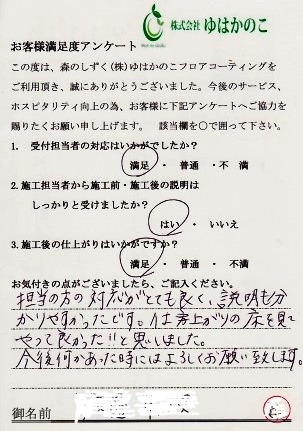 株式会社 ゆはかのこ
お客様満足度アンケート
この度は、森のしずく(株)ゆはかのこフロアコーティングを
ご利用頂き、誠にありがとうございました。今後のサービス、
ホスピタリティ向上の為、お客様に下記アンケートへご協力を
賜りたくお願い申し上げます。 該当欄を○で囲って下さい。
1. 受付担当者の対応はいかがでしたか?
満足 ・ 普通 ・ 不 満
2. 施工担当者から施工前・施工後の説明は
しっかりと受けましたか?
はい ・ いいえ
3. 施工後の仕上がりはいかがですか?
満足 ・ 普通 ・ 不満
お気付きの点がございましたら、ご記入ください。
担当の方の対応がとても良く、説明も分
かりやすかったです。仕上がりの床を見て
やって良かった!!と思いました。
今後何かあった時にはよろしくお願い致します。
御名前